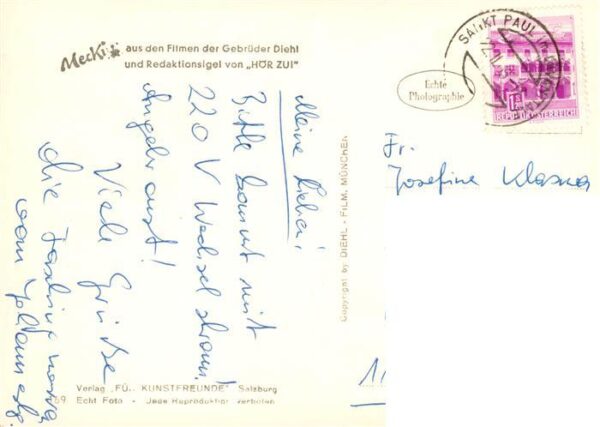 Mecki aus den Filmen der Gebrüder Diehl
und Redaktionsigel von „HÖR ZU!"
SANKT PAUL
Echte
Photographie
1S
REPUBLIK ÖSTERREICH
Fr.
Josefine
Meine Lieben!
Bitte kommt mit
220 V Wechselstrom!
Angebraust!
Viele Grüße
die
vom
Copyright by DIEHL - FILM, MÜNCHEN
Verlag „FÜR KUNSTFREUNDE" Salzburg
69 Echt Foto - Jede Reproduktion verboten
11